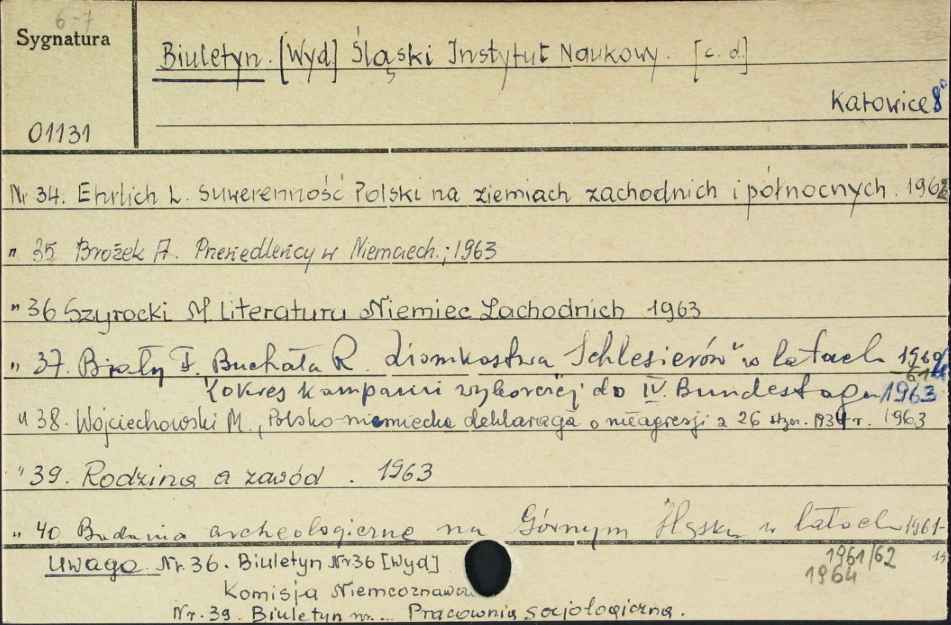 6-7
Sygnatura
Biuletyn. [Wyd] Śląski Instytut Naukowy. [c. d.]
Katowice 8°
01131
Nr 34. Ehrlich L. Suwerenność Polski na ziemiach zachodnich i północnych. 1962
" 35 Brożek A. Przesiedleńcy w Niemczech.; 1963
" 36 Szyrocki M. Literatura Niemiec Zachodnich 1963
" 37. Biały F. Buchała R. Ziomkostwa "Schlesierów" w latach 1960/
61
(okres kampanii wyborczej do IV. Bundestagu 1963
" 38. Wójciechowski M., Polsko-niemiecka deklaracja o nieagresji z 26 stycz. 1934 r. 1963
" 39. Rodzina a zawód. 1963
" 40 Badania archeologiczne na Górnym Śląsku w latach 1961-
1961/62
1964
Uwaga. Nr. 36. Biuletyn Nr 36 [Wyd]
Komisja Niemcoznawcza
Nr. 39. Biuletyn nr... Pracownia socjologiczna.